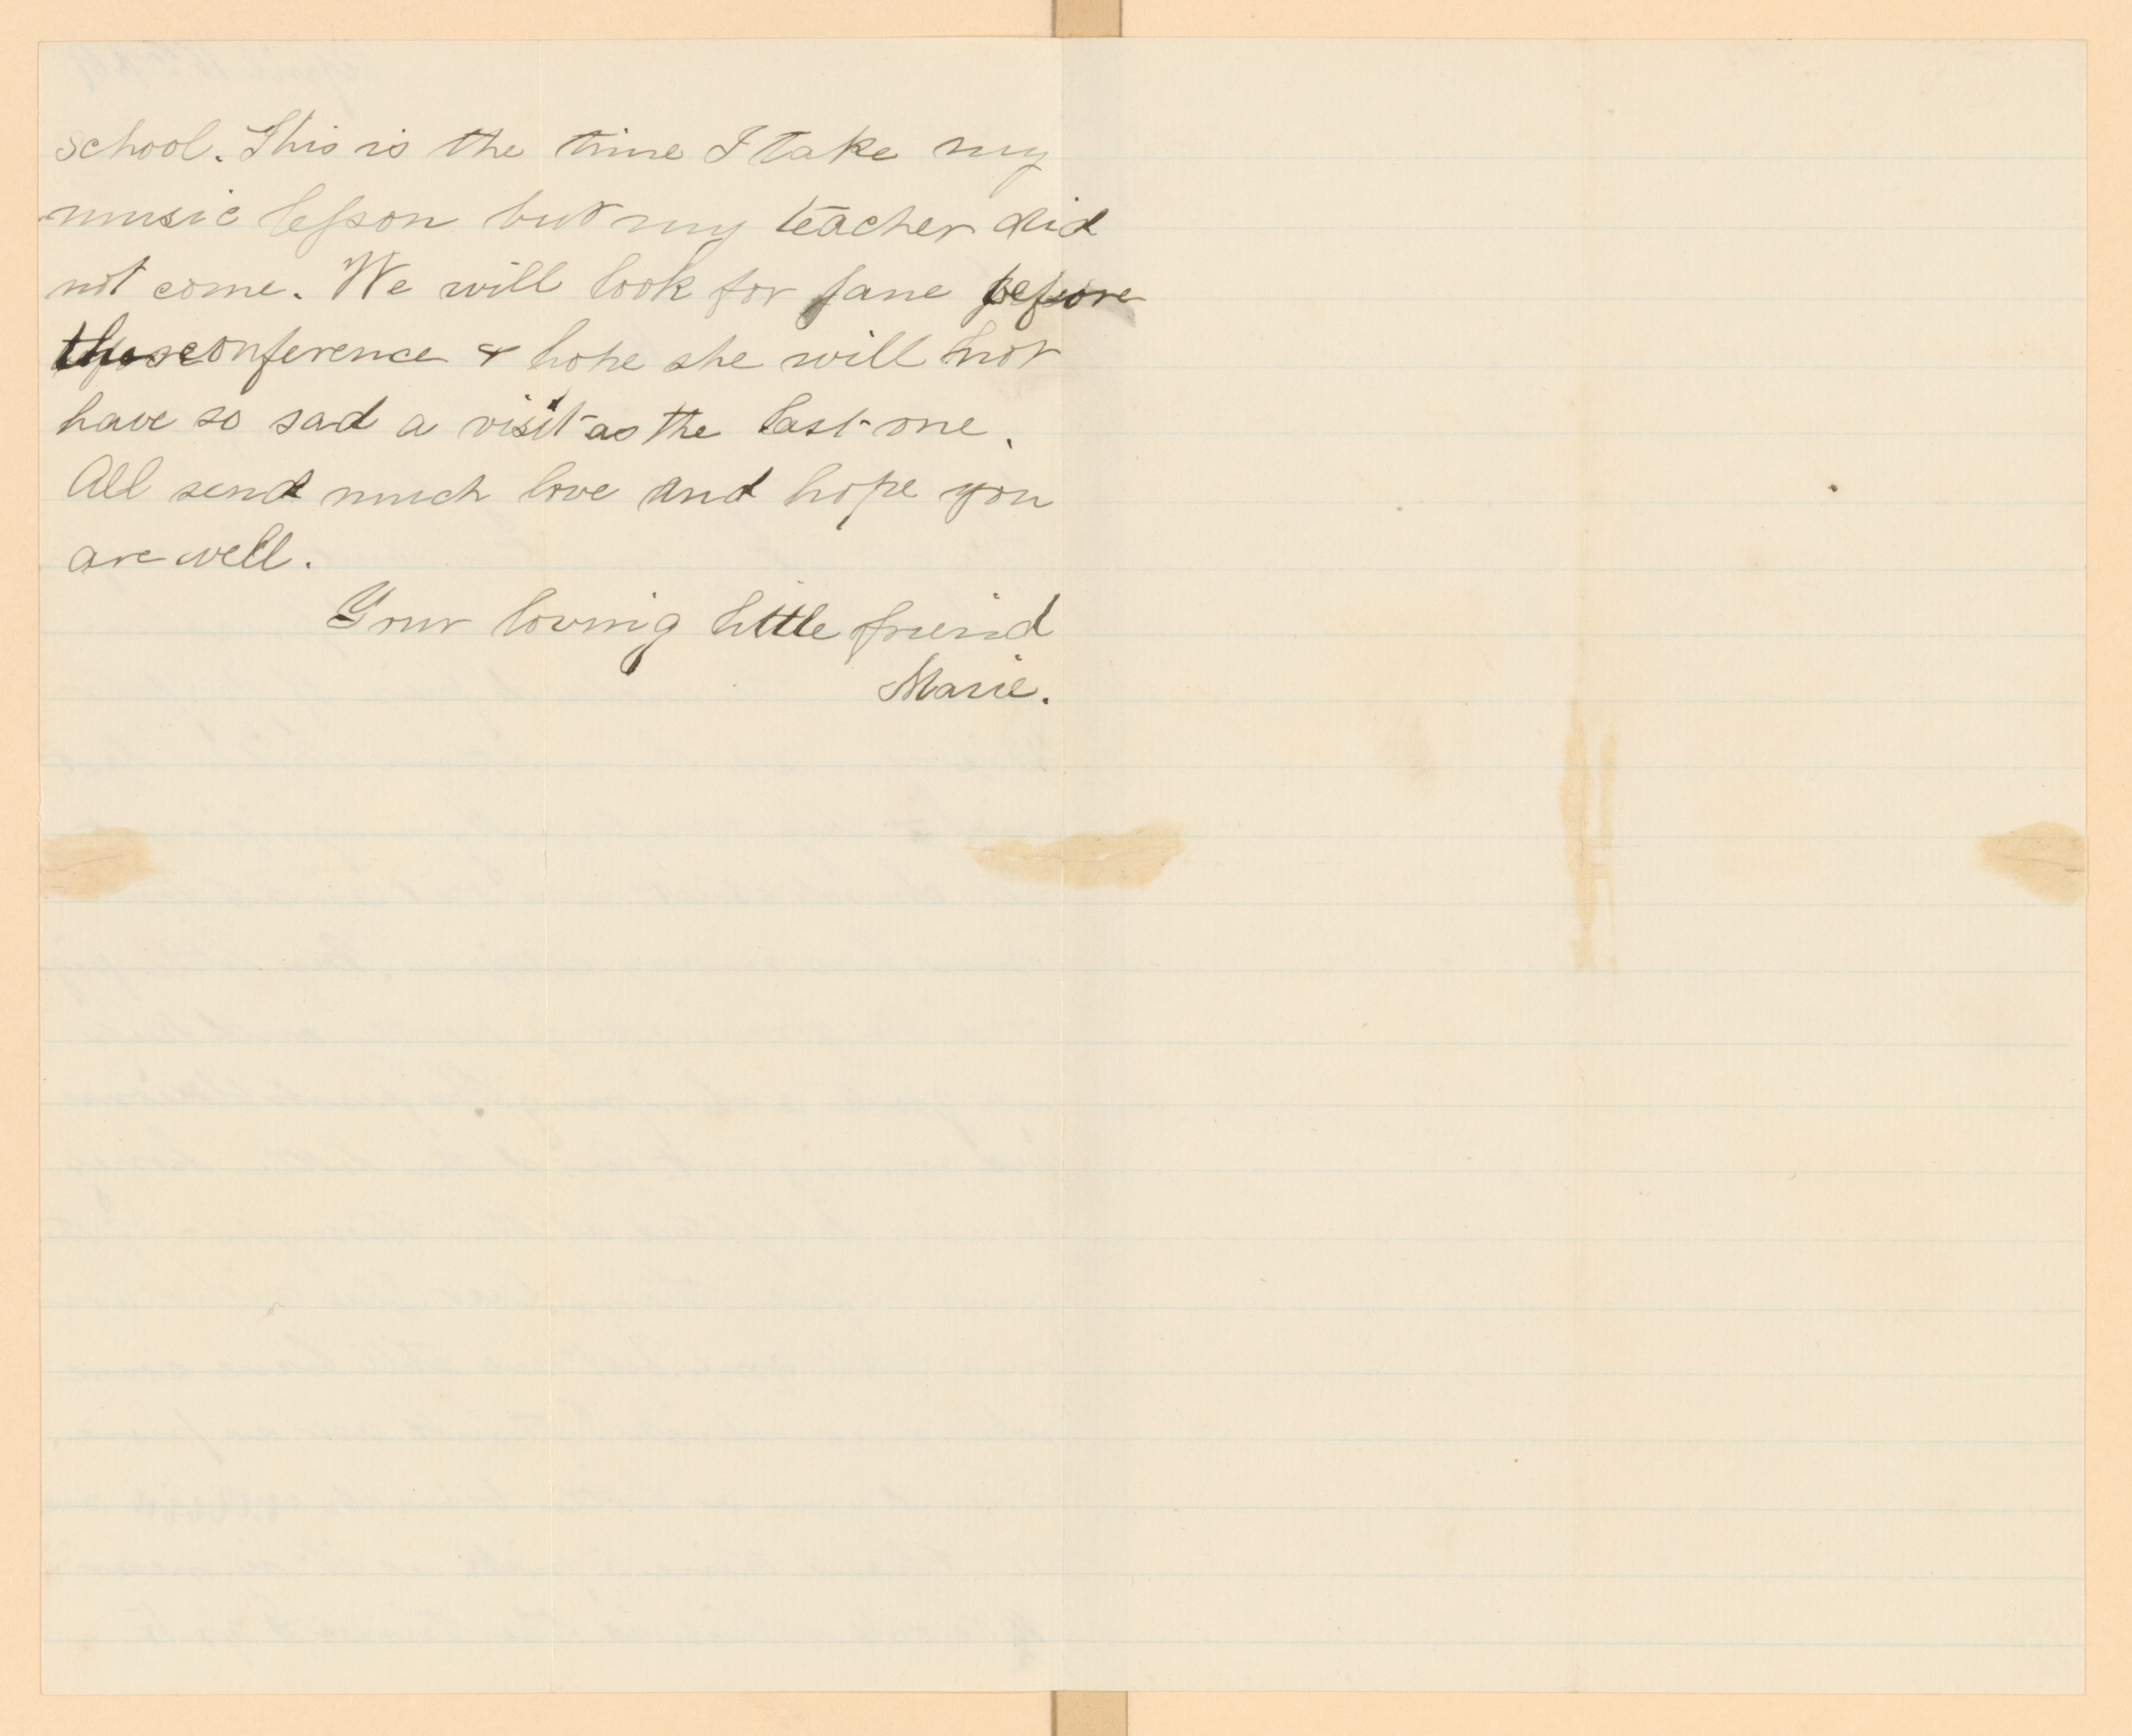 school. This is the time I take my
music lesson but my teacher did
not come. We will look for Jane before
the conference & hope she will not
have so sad a visit as the last one.
All send much love and hope you
are well.
Your loving little friend
Marie.